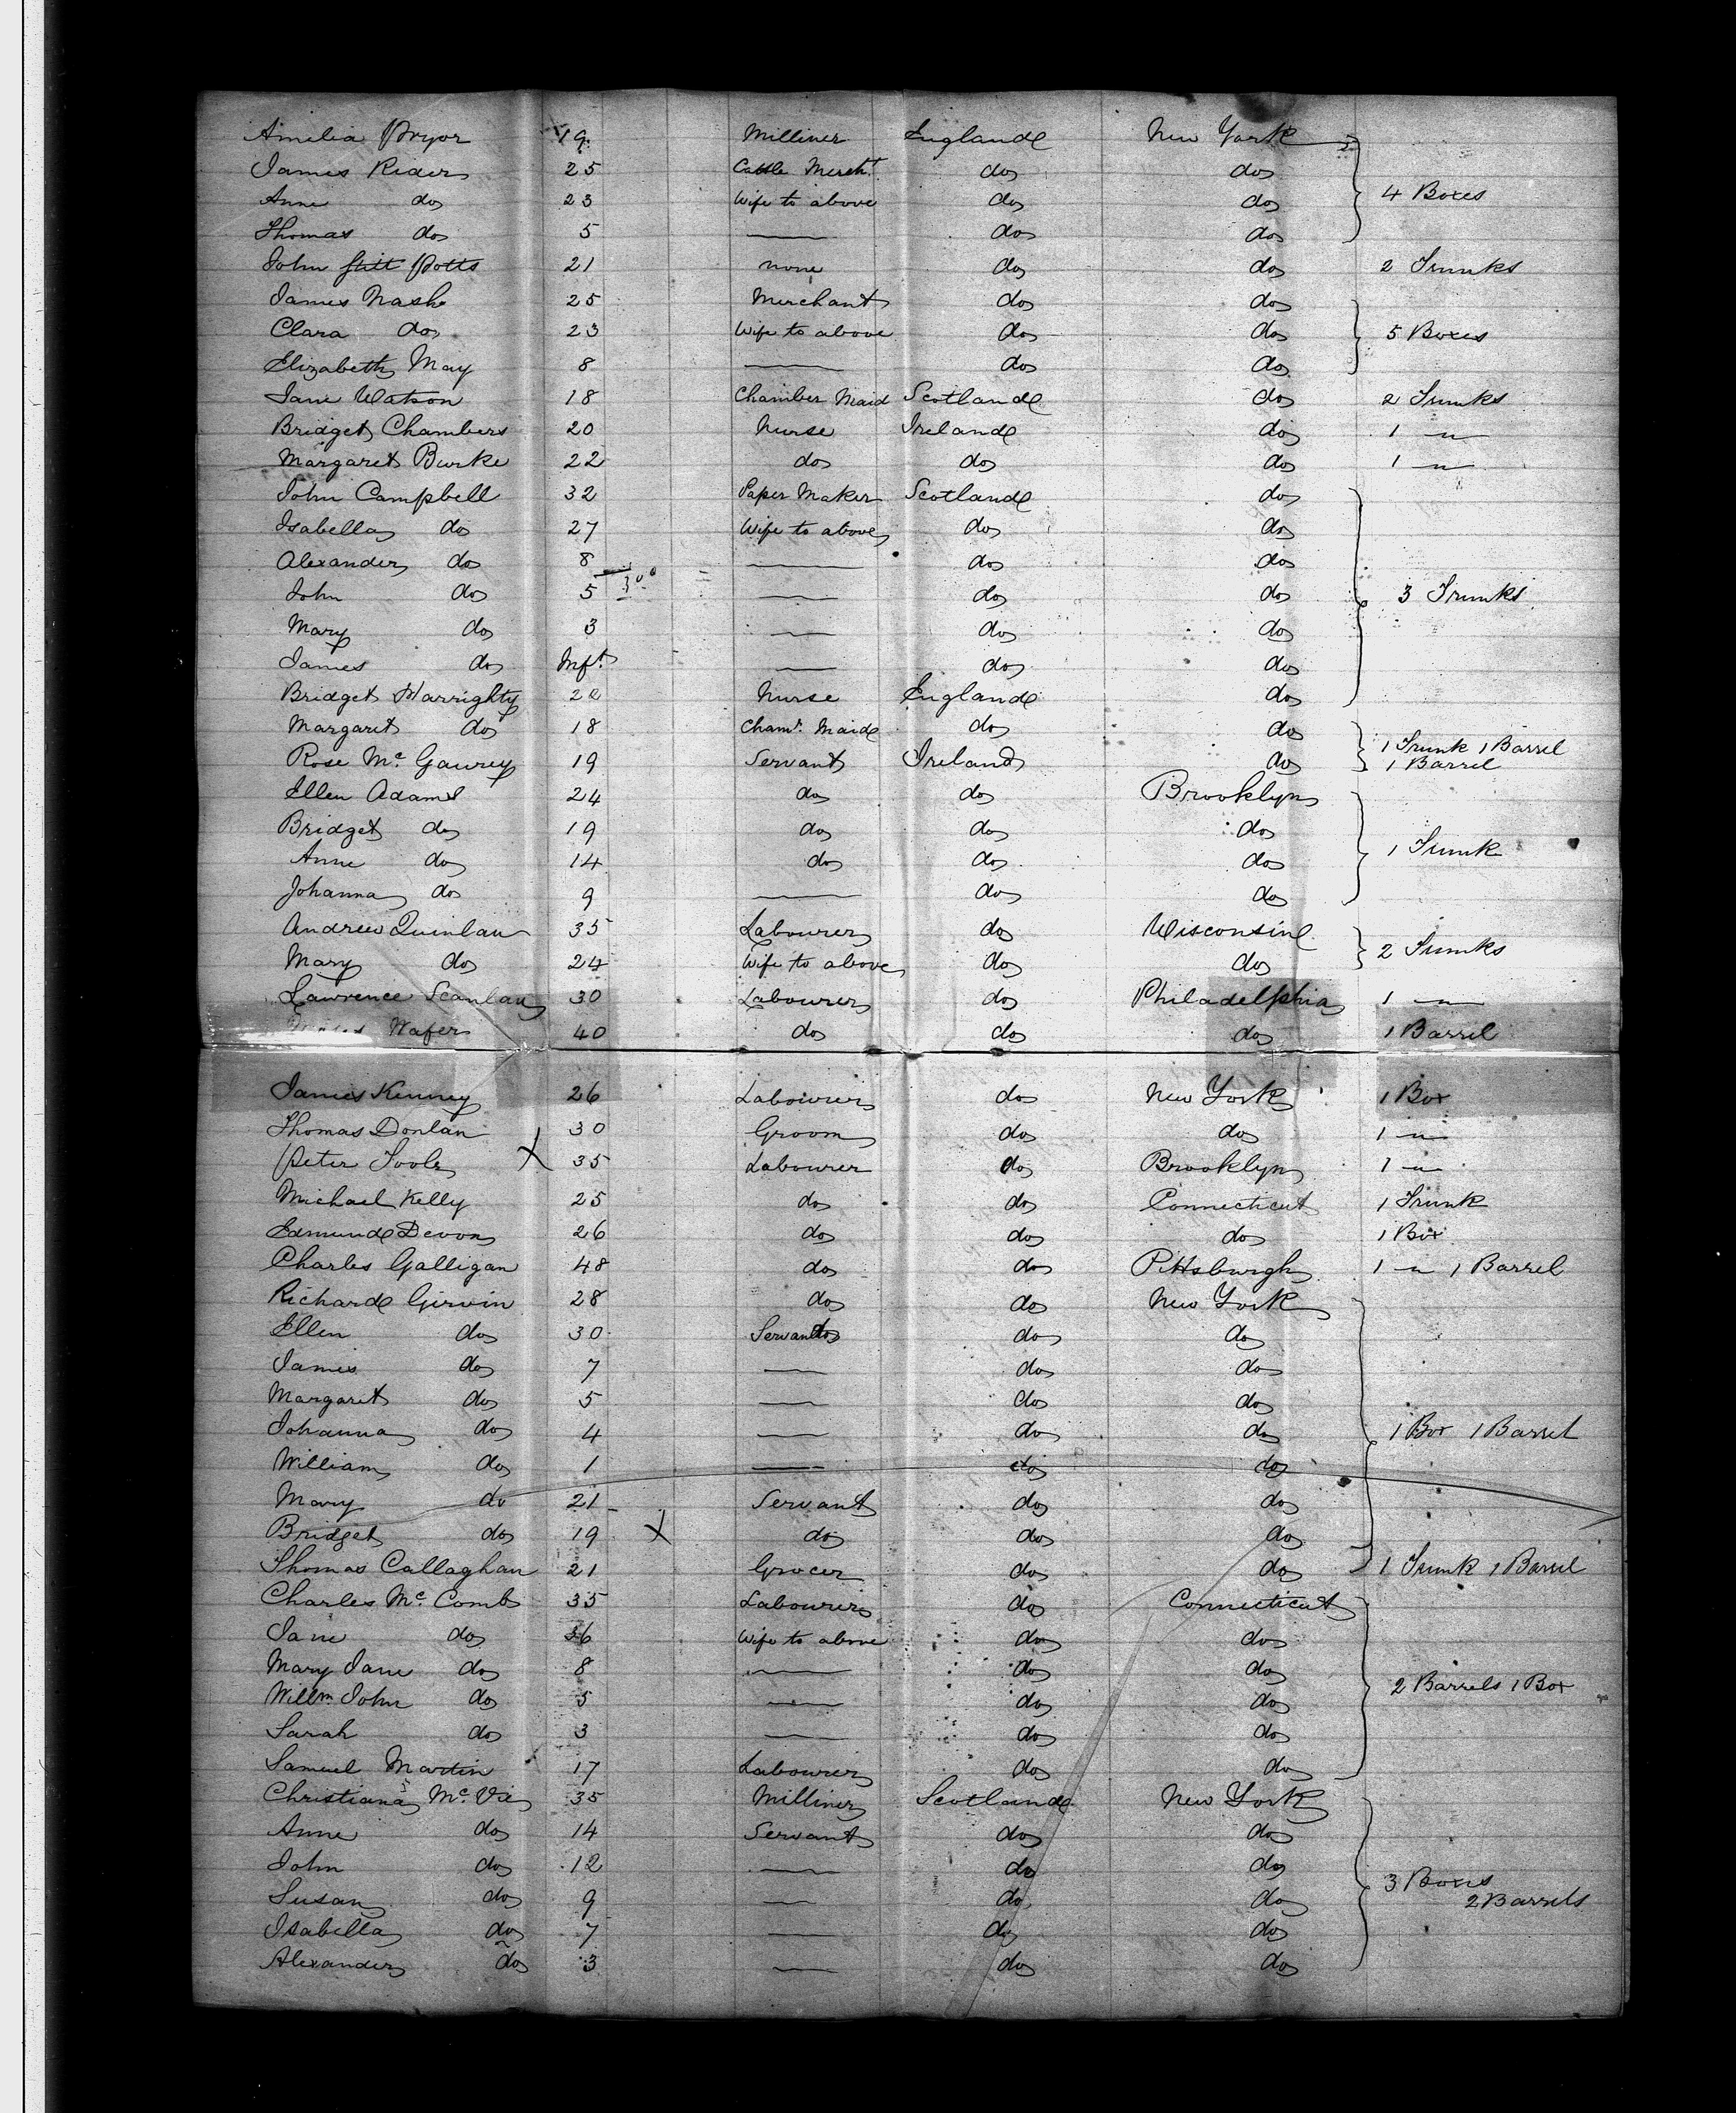 Amelia Pryor 19 Milliner England New York
James Rider 25 Cattle Mercht. do do
Anne do 23 Wife to above do do 4 Boxes
Thomas do 5 — do do
John Potts 21 none do do 2 Trunks
James Nash 25 Merchant do do
Clara do 23 Wife to above do do 5 Boxes
Elizabeth May 8 — do do
Jane Watson 18 Chamber Maid Scotland do 2 Trunks
Bridget Chambers 20 Nurse Ireland do 1 —"—
Margaret Burke 22 do do do 1 —"—
John Campbell 32 Paper Maker Scotland do
Isabella do 27 Wife to above do do
Alexander do 8 — do do
John do 5 — do do 3 Trunks
Mary do 3 — do do
James do Inft. — do do
Bridget Harrighty 22 Nurse England do
Margaret do 18 Chamr. Maid do do 1 Trunk 1 Barrel
Rose Mc. Gaurey 19 Servant Ireland do 1 Barrel
Ellen Adams 24 do do Brooklyn
Bridget do 19 do do do
Anne do 14 do do do 1 Trunk
Johanna do 9 — do do
Andrew Quinlan 35 Labourer do Wisconsin
Mary do 24 Wife to above do do 2 Trunks
Lawrence Scanlan 30 Labourer do Philadelphia 1 —"—
Wafer 40 do do do 1 Barrel
James Kenney 26 Labourer do New York 1 Box
Thomas Donlan 30 Groom do do 1 —"—
Peter Toole X 35 Labourer do Brooklyn 1 —"—
Michael Kelly 25 do do Connecticut 1 Trunk
Edmund Devon 26 do do do 1 Box
Charles Galligan 48 do do Pittsburgh 1 —"— 1 Barrel
Richard Girvin 28 do do New York
Ellen do 30 Servant do do
James do 7 — do do
Margaret do 5 — do do
Johanna do 4 — do do 1 Box 1 Barrel
William do 1 — do do
Mary do 21 Servant do do
Bridget do 19 X do do do
Thomas Callaghan 21 Grocer do do 1 Trunk 1 Barrel
Charles Mc. Comb 35 Labourer do Connecticut
Jane do 36 Wife to above do do
Mary Jane do 8 — do do
Willm John do 5 — do do 2 Barrels 1 Box
Sarah do 3 — do do
Samuel Martin 17 Labourer do do
Christiana Mc. Vie 35 Milliner Scotland New York
Anne do 14 Servant do do
John do 12 — do do
Susan do 9 — do do 3 Boxes 2 Barrels
Isabella do 7 — do do
Alexander do 3 — do do